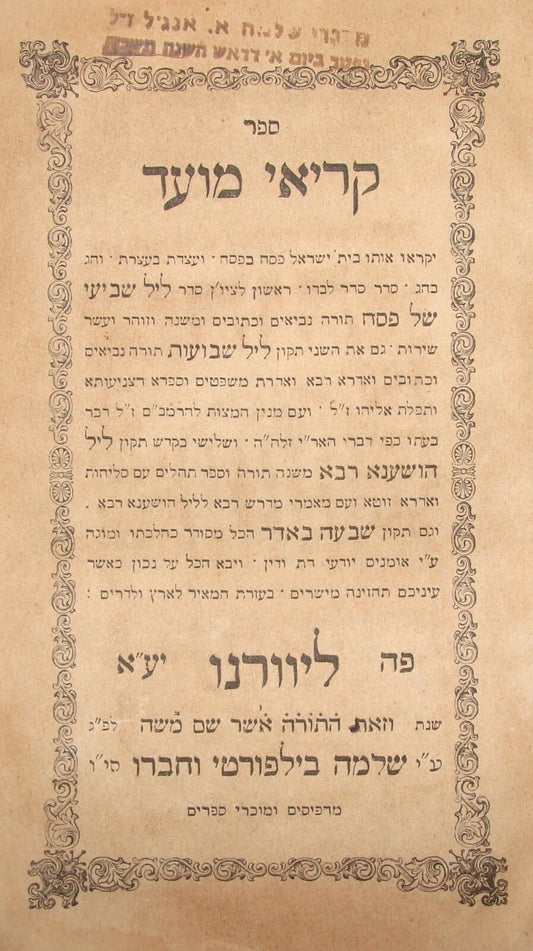 מדברי שלמה א. אנג'יל ז"ל
נפטר ביום א' דראש השנה תשכ"
ספר
קריאי מועד
יקראו אותו בית ישראל פסח בפסח · ועצרת בעצרת · וחג
בחג · סדר סדר לברו · ראשון לציו"ן סדר ליל שביעי
של פסח תורה נביאים וכתובים ומשנה וזוהר ועשר
שירות · גם את השני תקון ליל שבועות תורה נביאים
וכתובים ואדרא רבא ואדרת משפטים וספרא דצניעותא
ותפלת אליהו ז"ל · ועם מנין המצות להרמב"ם ז"ל דבר
בעתו כפי דברי האר"י זלה"ה · ושלישי בקדש תקון ליל
הושענא רבא משנה תורה וספר תהלים עם סליחות
ואדרא זוטא ועם מאמרי מדרש רבא לליל הושענא רבא .
וגם תקון שבעה באדר הכל מסודר כהלכתו ומוגה
ע"י אומנים יודעי דת ודין · ויבא הכל על נכון כאשר
עיניכם תחזינה מישרים · בעזרת המאיר לארץ ולדרים :
פה ליוורנו יע"א
שנת וזאת התורה אשר שם משה לפ"ג
ע"י שלמה בילפורטי וחברו הי"ו
מדפיסים ומוכרי ספרים